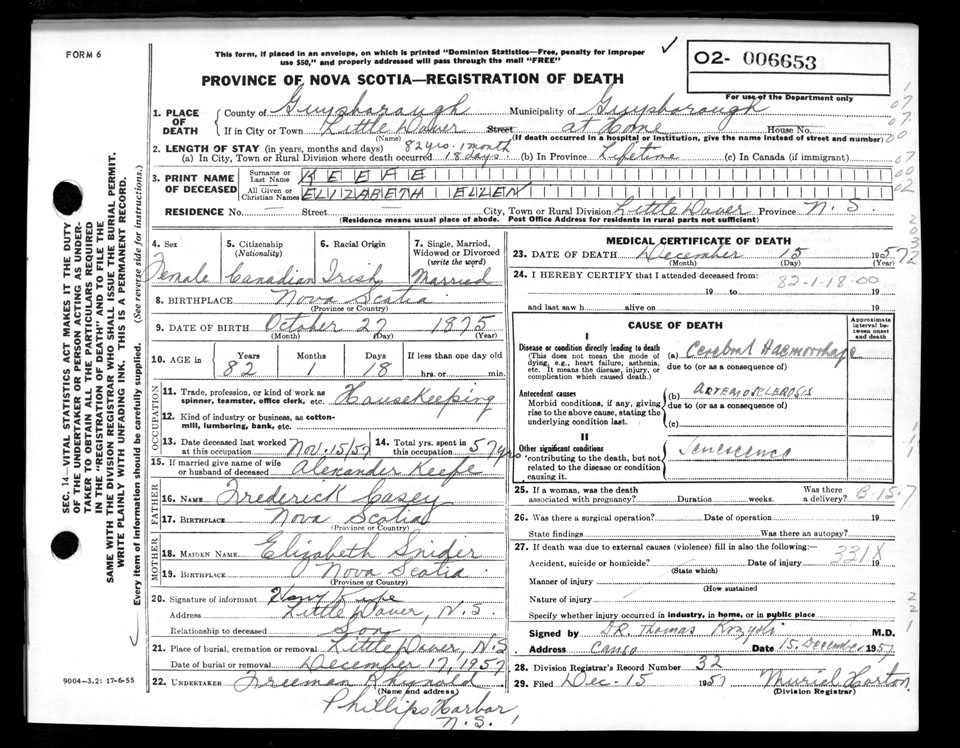 FORM 6
This form, if placed in an envelope, on which is printed "Dominion Statistics—Free, penalty for improper
use $50," and properly addressed will pass through the mail "FREE"
✓
O2- 006653
For use of the Department only
PROVINCE OF NOVA SCOTIA—REGISTRATION OF DEATH
1. PLACE OF DEATH County of Guysborough Municipality of Guysborough
If in City or Town Little Dover Street at Home House No.
(Name) (If death occurred in a hospital or institution, give the name instead of street and number)
2. LENGTH OF STAY (in years, months and days) 82 yrs. 1 month
(a) In City, Town or Rural Division where death occurred 18 days. (b) In Province Lifetime (c) In Canada (if immigrant)
3. PRINT NAME OF DECEASED Surname or Last Name KEEFE
All Given or Christian Names ELIZABETH ELLEN
RESIDENCE No. — Street — City, Town or Rural Division Little Dover Province N. S.
(Residence means usual place of abode. Post Office Address for residents in rural parts not sufficient)
4. Sex Female
5. Citizenship (Nationality) Canadian
6. Racial Origin Irish
7. Single, Married, Widowed or Divorced (write the word) Married
8. BIRTHPLACE Nova Scotia
(Province or Country)
9. DATE OF BIRTH October 27 1875
(Month) (Day) (Year)
10. AGE in Years 82 Months 1 Days 18 If less than one day old
hrs. or min.
OCCUPATION
11. Trade, profession, or kind of work as spinner, teamster, office clerk, etc. Housekeeping
12. Kind of industry or business, as cotton-mill, lumbering, bank, etc.
13. Date deceased last worked at this occupation Nov. 15/57
14. Total yrs. spent in this occupation 57 yrs
15. If married give name of wife or husband of deceased Alexander Keefe
FATHER
16. NAME Frederick Casey
17. BIRTHPLACE Nova Scotia
(Province or Country)
MOTHER
18. MAIDEN NAME Elizabeth Snider
19. BIRTHPLACE Nova Scotia
(Province or Country)
20. Signature of informant Keefe
Address Little Dover, N.S.
Relationship to deceased Son
21. Place of burial, cremation or removal Little Dover, N.S
Date of burial or removal December 17, 1957
22. UNDERTAKER Freeman Rhynold
(Name and address)
Phillips Harbor
N. S.
MEDICAL CERTIFICATE OF DEATH
23. DATE OF DEATH December 15 1957
(Month) (Day) (Year)
24. I HEREBY CERTIFY that I attended deceased from: 82-1-18-00
19 to 19
and last saw h alive on 19
CAUSE OF DEATH
Approximate interval between onset and death
I
Disease or condition directly leading to death
(This does not mean the mode of dying, e.g., heart failure, asthenia, etc. It means the disease, injury, or complication which caused death.)
(a) Cerebral Haemorrhage
due to (or as a consequence of)
Antecedent causes
Morbid conditions, if any, giving rise to the above cause, stating the underlying condition last.
(b) ARTERIOSCLEROSIS
due to (or as a consequence of)
(c)
II
Other significant conditions
contributing to the death, but not related to the disease or condition causing it.
Senescence
25. If a woman, was the death associated with pregnancy? Duration weeks. Was there a delivery? B-15-7
26. Was there a surgical operation? Date of operation 19
State findings Was there an autopsy?
27. If death was due to external causes (violence) fill in also the following:—
Accident, suicide or homicide? Date of injury 331X 19
(State which)
Manner of injury
(How sustained
Nature of injury
Specify whether injury occurred in industry, in home, or in public place
Signed by DR. Thomas M.D.
Address CANSO Date 15. December 1957
28. Division Registrar's Record Number 32
29. Filed Dec. 15 1957 Muriel Horton
(Division Registrar)
SEC. 14—VITAL STATISTICS ACT MAKES IT THE DUTY
OF THE UNDERTAKER OR PERSON ACTING AS UNDER-
TAKER TO OBTAIN ALL THE PARTICULARS REQUIRED
IN THE "REGISTRATION OF DEATH" AND TO FILE THE
SAME WITH THE DIVISION REGISTRAR WHO SHALL ISSUE THE BURIAL PERMIT.
WRITE PLAINLY WITH UNFADING INK. THIS IS A PERMANENT RECORD.
Every item of information should be carefully supplied. (See reverse side for instructions.)
9004—3.2: 17-6-55